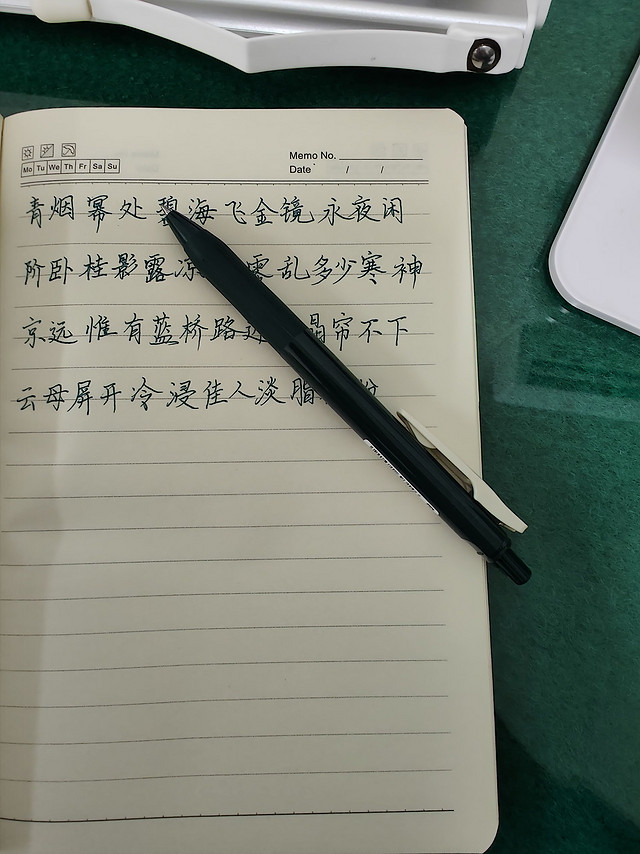 Memo No.
Mo Tu We Th Fr Sa Su
Date / /
青烟幂处碧海飞金镜永夜闲
阶卧桂影露凉 零乱多少寒神
京远惟有蓝桥路近 晶帘不下
云母屏开冷浸佳人淡脂